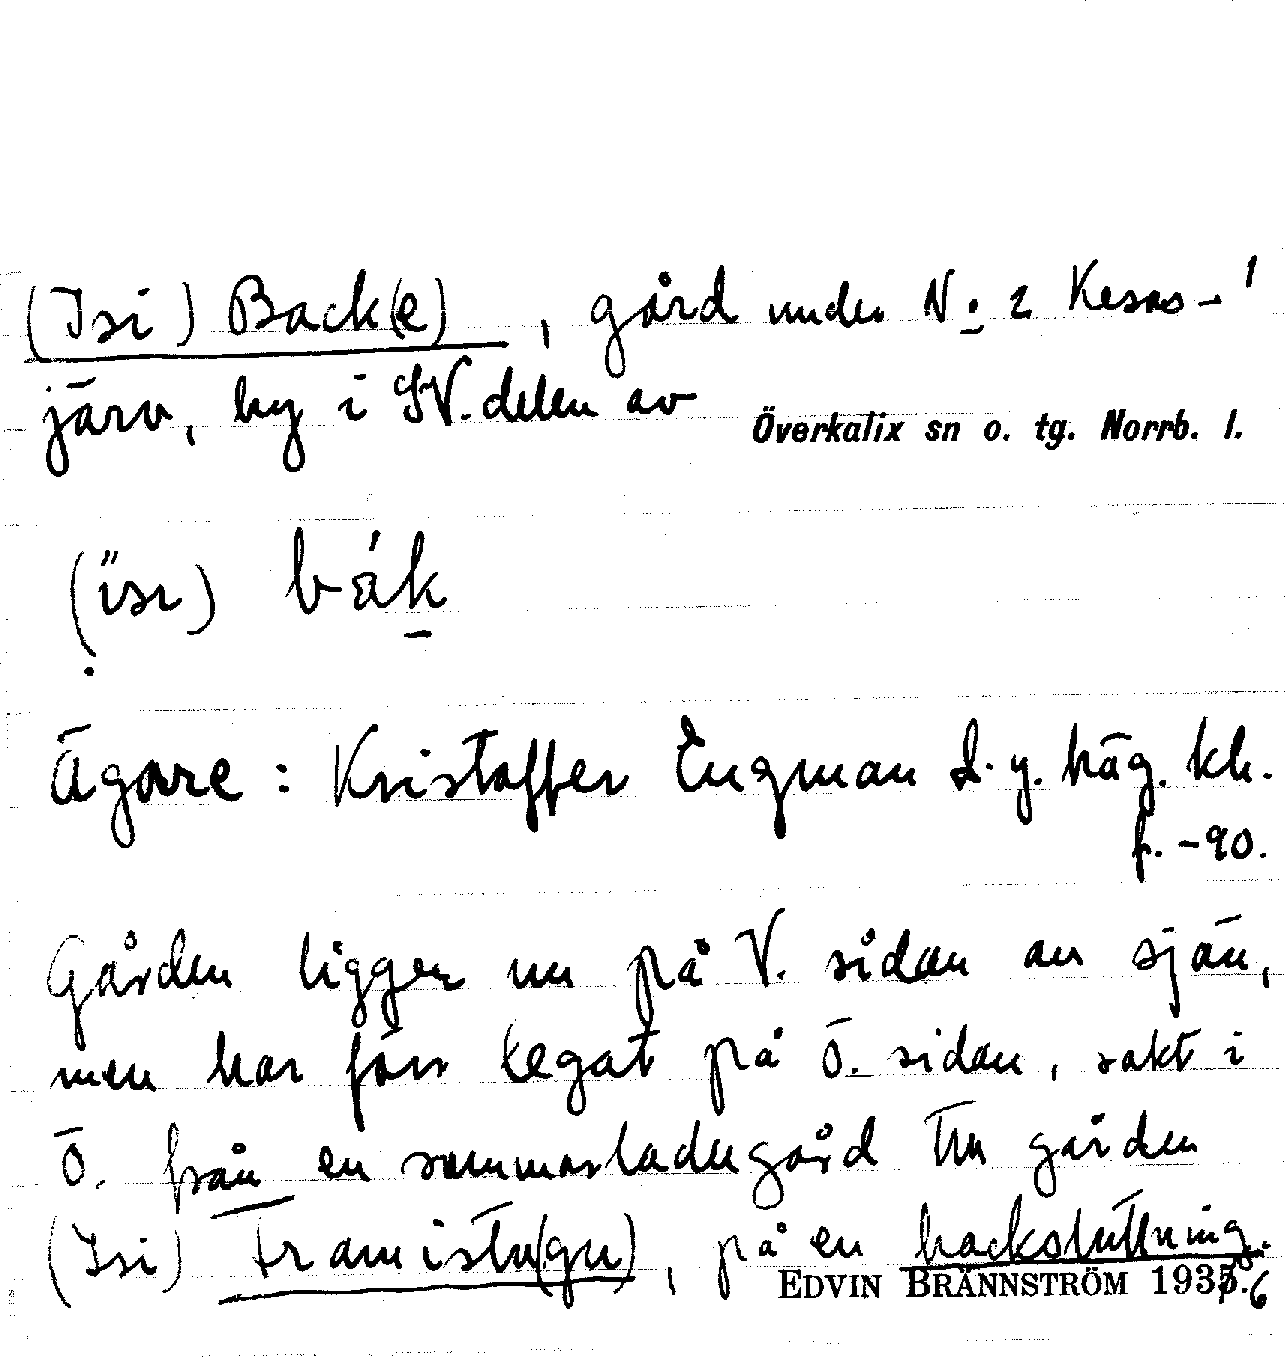 (Isi) Back(e), gård under No 2 Kesas-
järv, by i SV. delen av Överkalix sn o. tg. Norrb. l.
bák
Ägare: Kristoffer Engman d. y. häg. kh.
f. -90.
Gården ligger nu på V. sidan av sjön,
men har förr legat på Ö. sidan, rakt i
Ö. från en sommarladugård till gården
(Isi) Framistu(gu), på en backsluttning.
EDVIN BRÄNNSTRÖM 1936